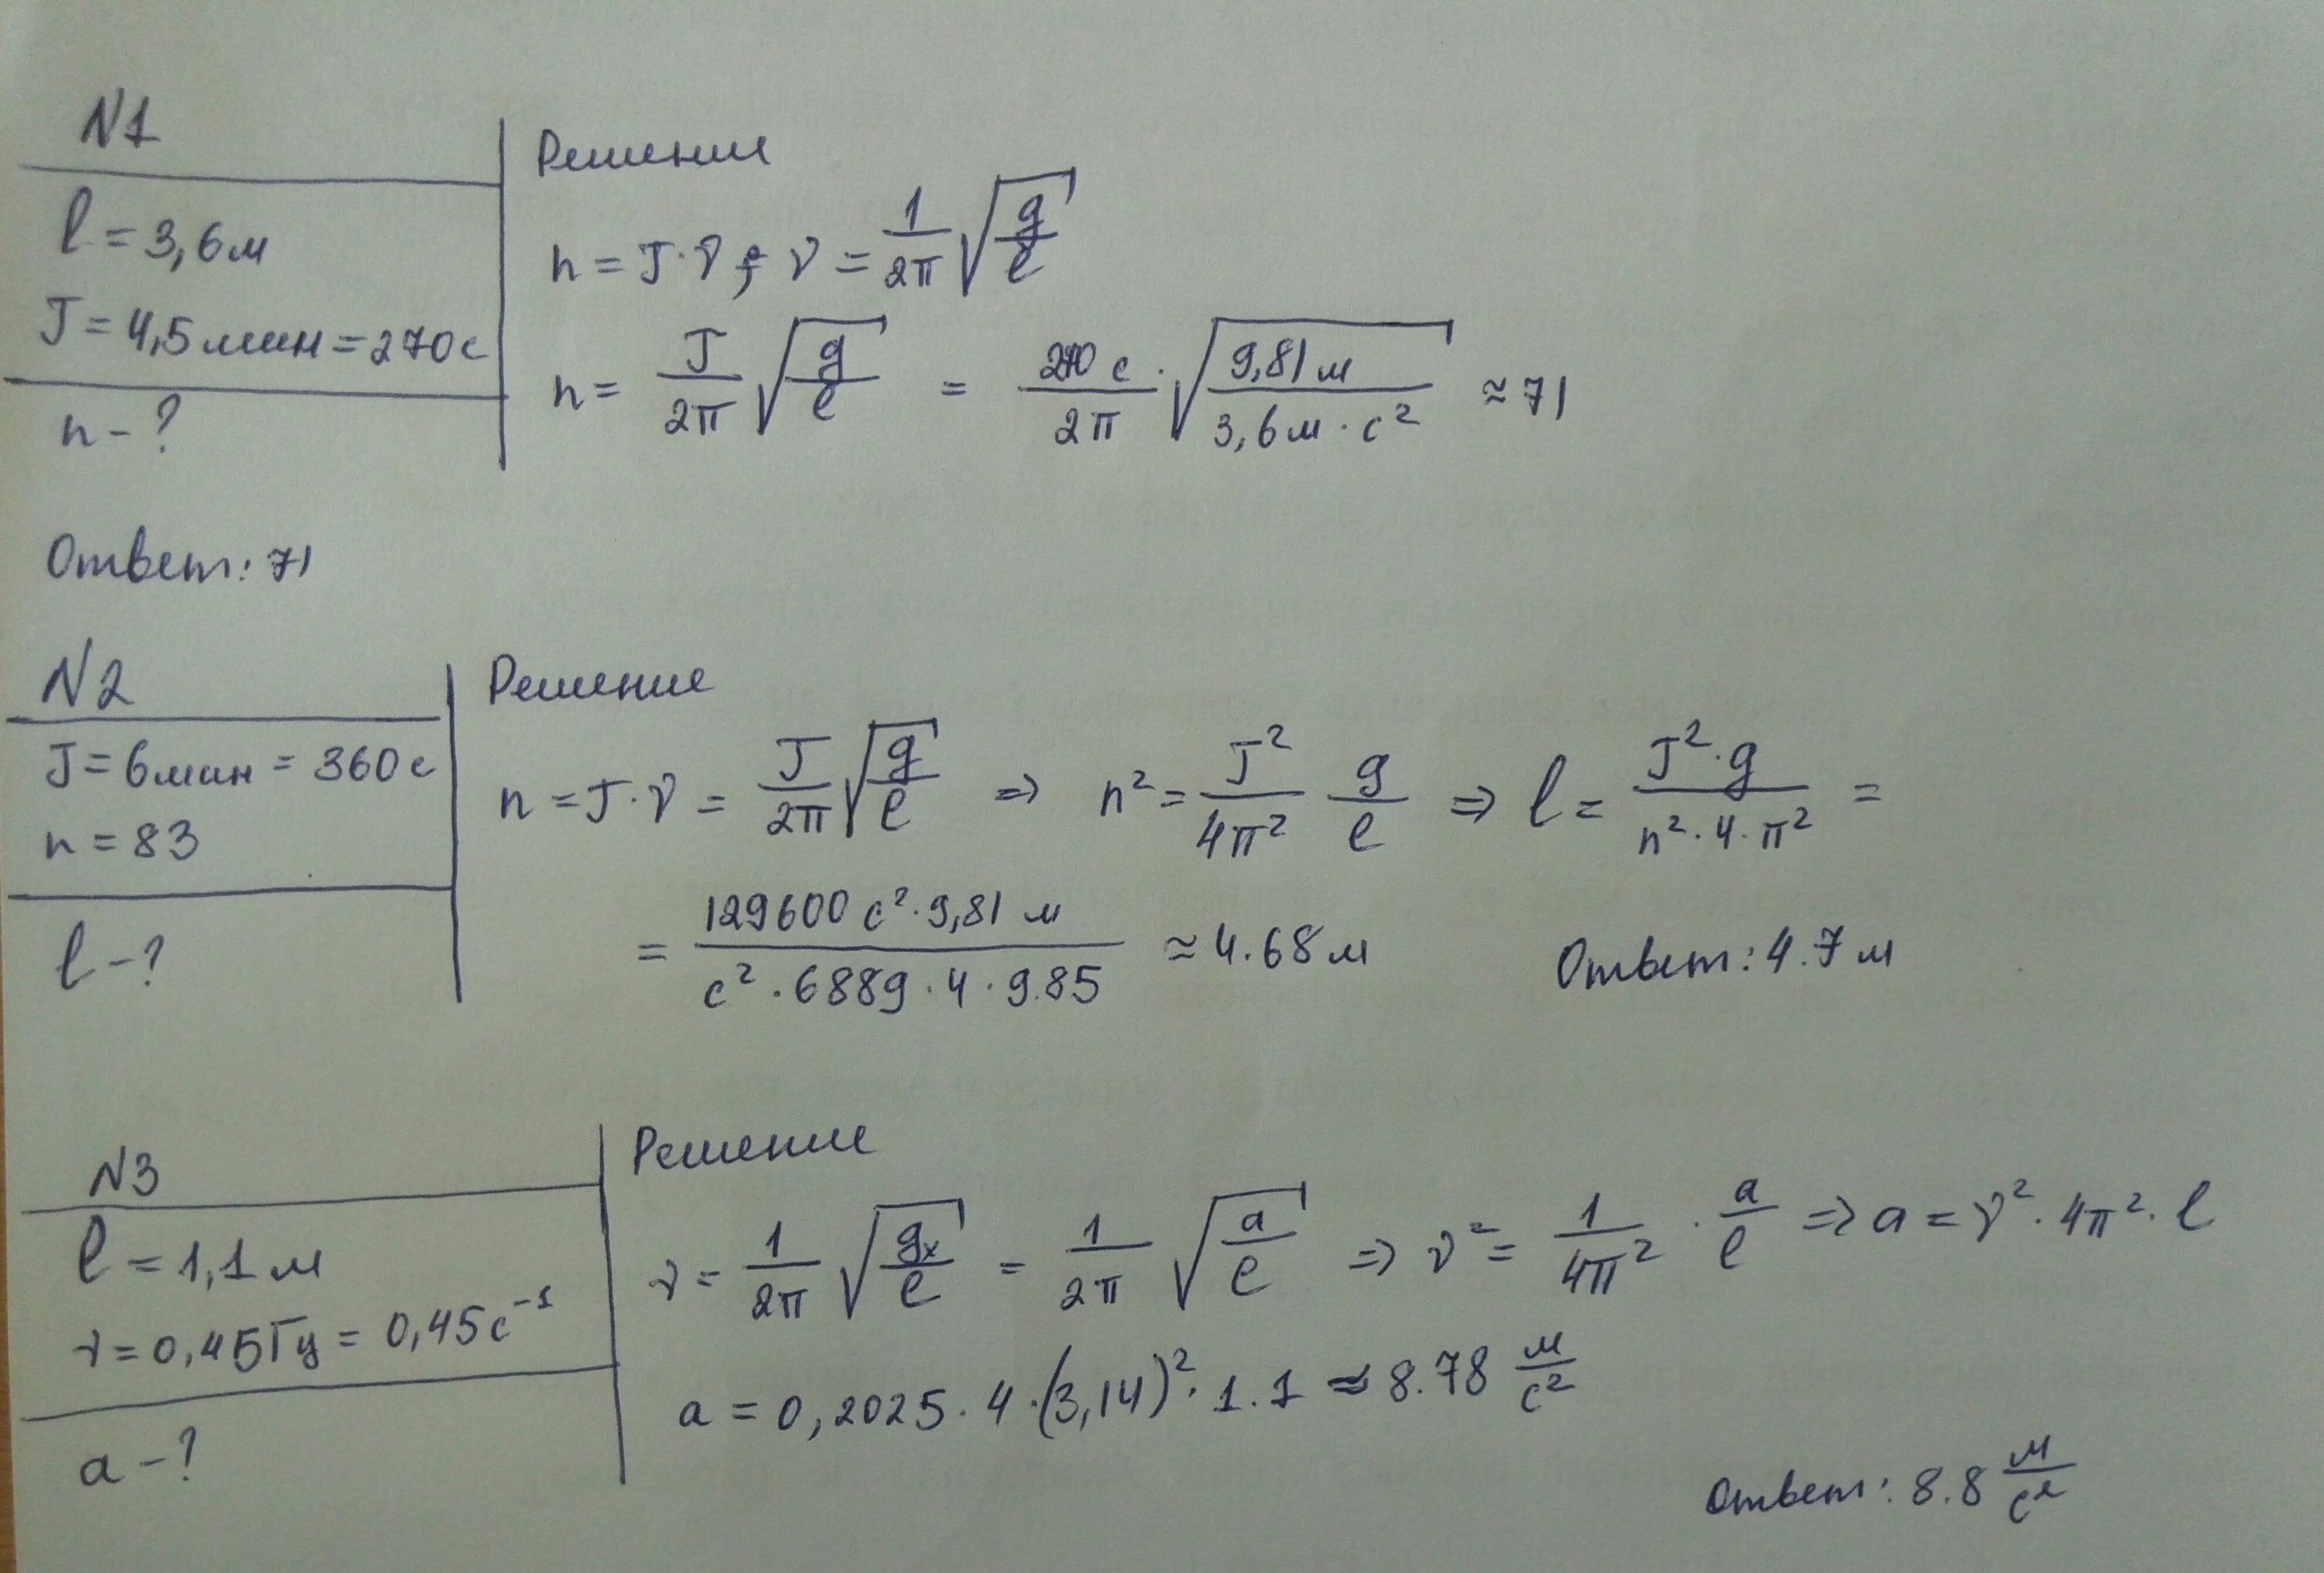 N1
l = 3,6м
J = 4,5 мин = 270 с
n - ?
Решение
n = J · ν ; ν = 1/2π √(g/l)
n = J/2π √(g/l) = 270 с/2π · √(9,81 м/3,6 м · с²) ≈ 71
Ответ: 71
N2
J = 6 мин = 360 с
n = 83
l - ?
Решение
n = J · ν = J/2π √(g/l) => n² = J²/4π² g/l => l = J² · g/n² · 4 · π² =
= 129600 с² · 9,81 м/с² · 6889 · 4 · 9.85 ≈ 4.68 м
Ответ: 4.7 м
N3
l = 1,1 м
ν = 0,45 Гц = 0,45 с⁻¹
a - ?
Решение
ν = 1/2π √(gx/l) = 1/2π √(a/l) => ν² = 1/4π² · a/l => a = ν² · 4π² · l
a = 0,2025 · 4 · (3,14)² · 1.1 ≈ 8.78 м/с²
Ответ: 8.8 м/с²